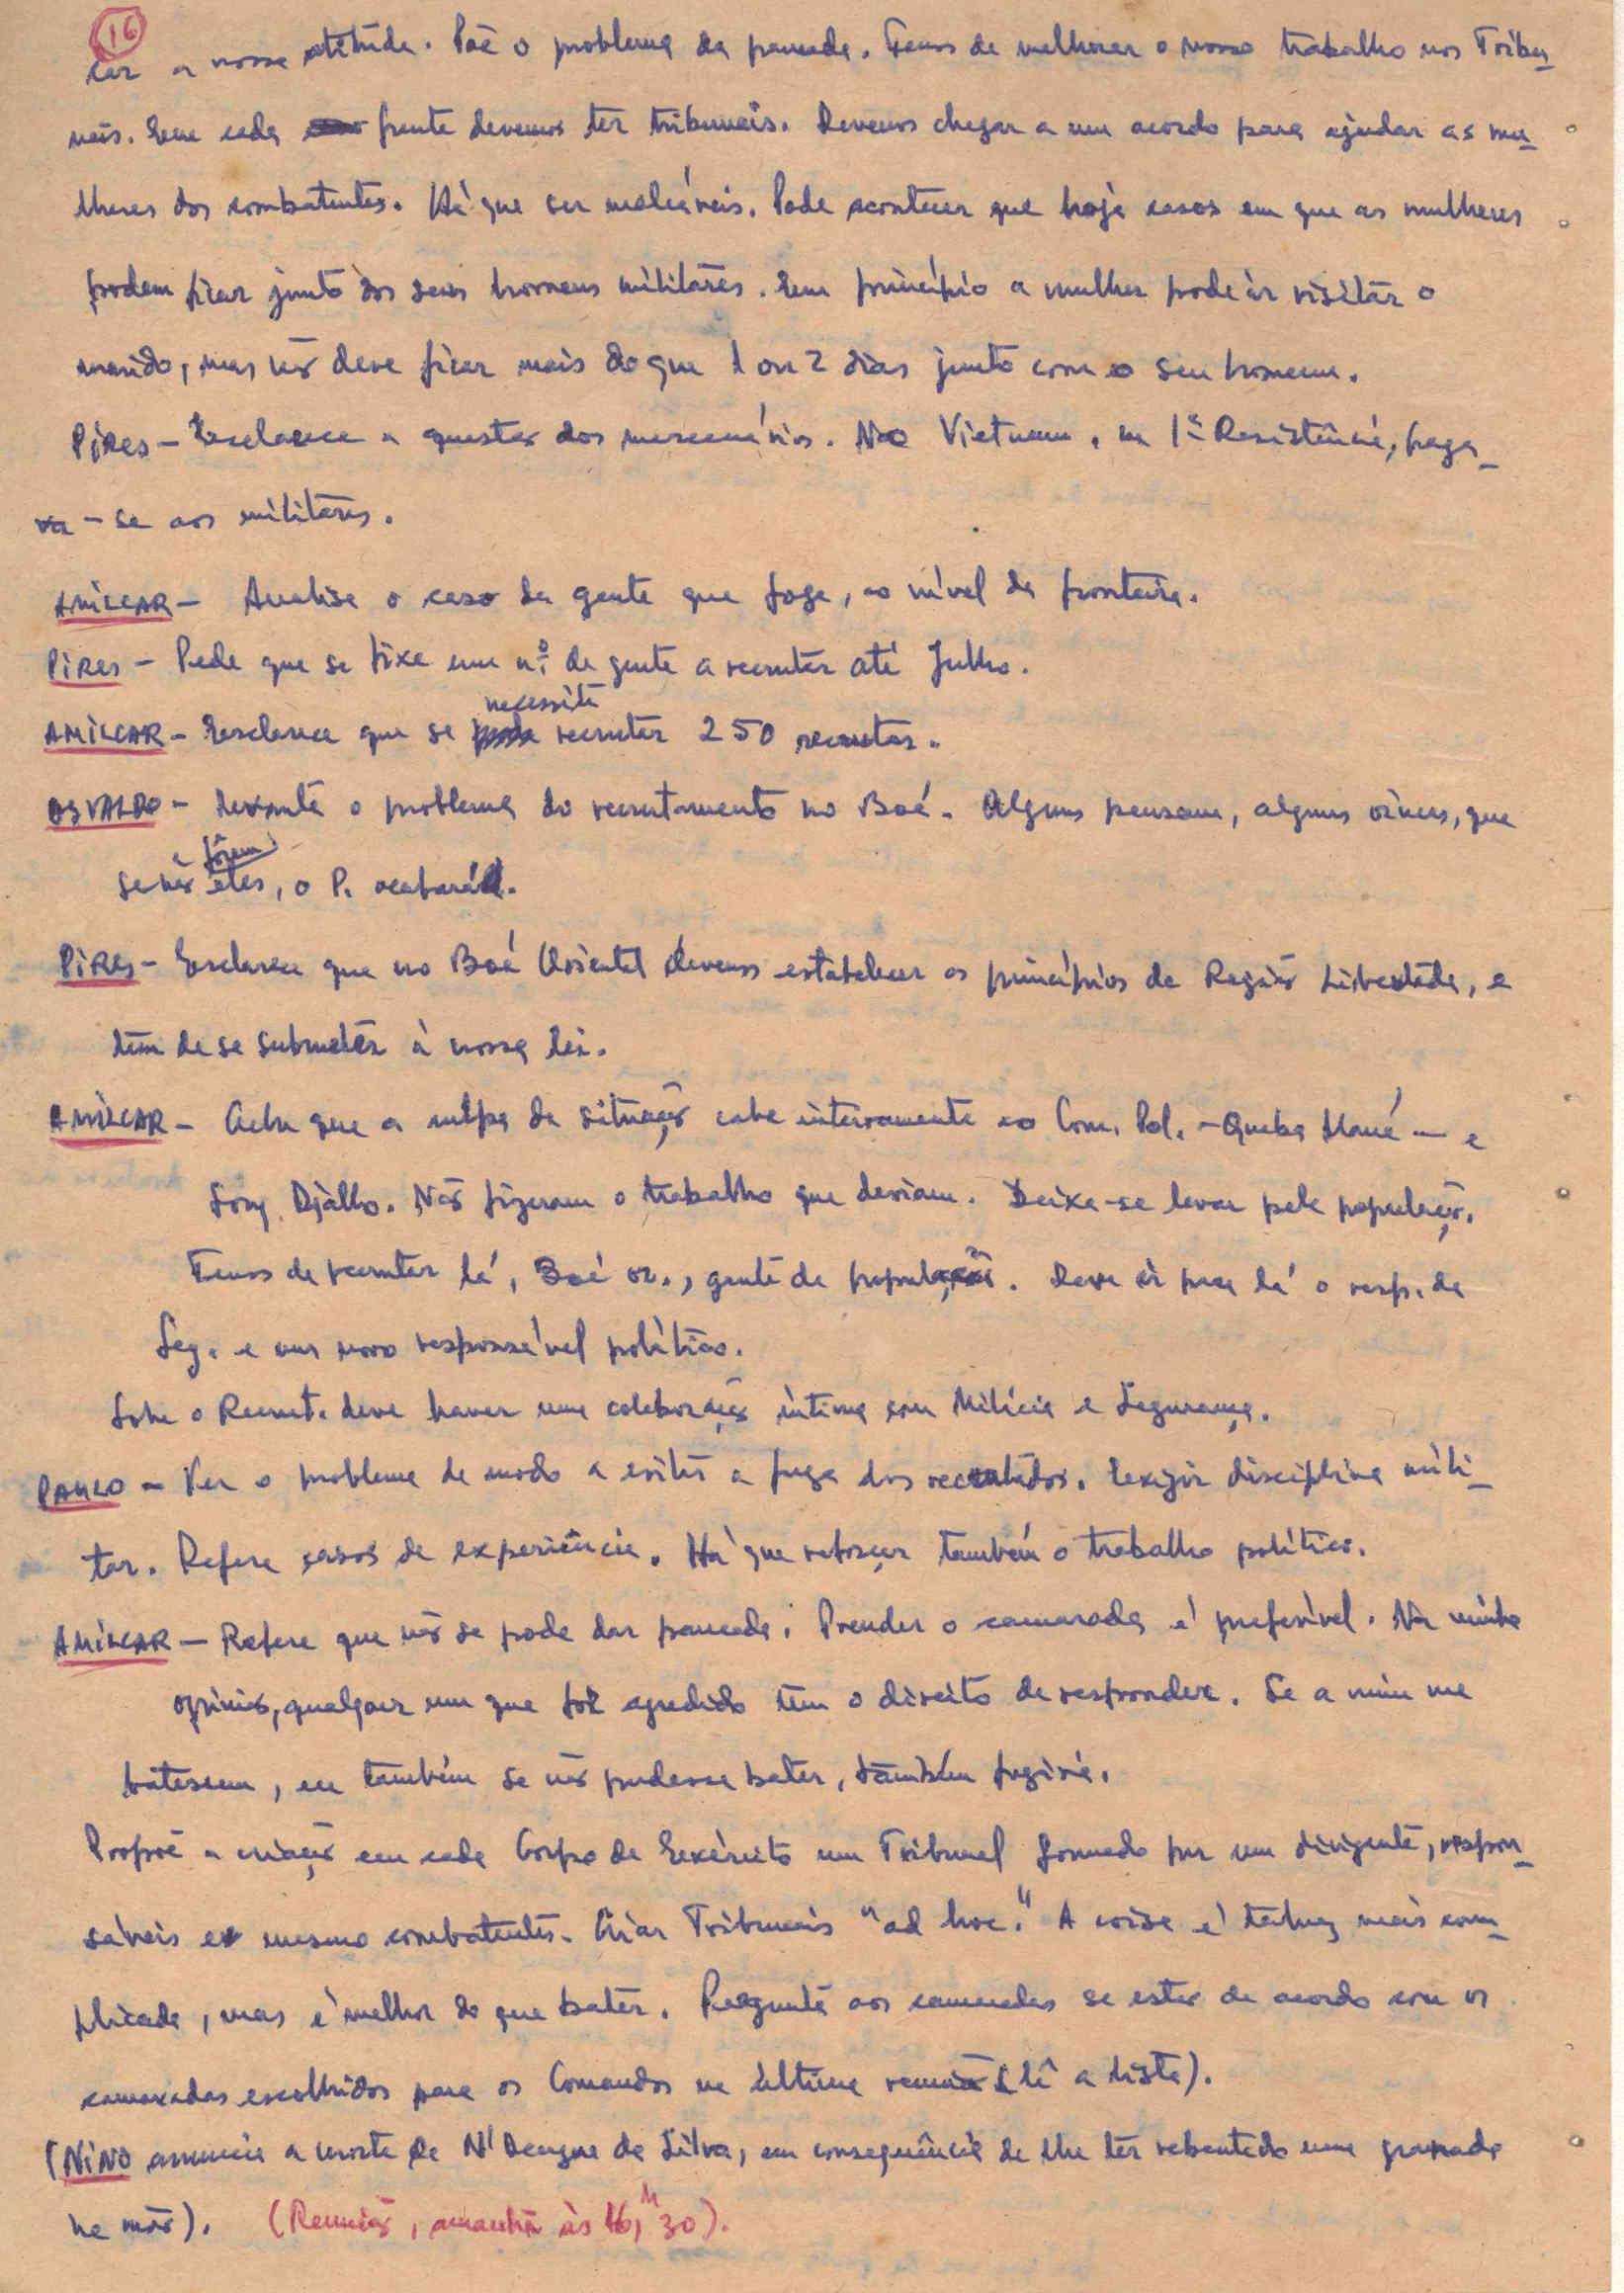 16
car a nossa atitude. Põe o problema da pancada. Temos de melhorar o nosso trabalho nos Tribu-
nais. Em cada frente devemos ter tribunais. Devemos chegar a um acordo para ajudar as mu-
lheres dos combatentes. Há que ser maleáveis. Pode acontecer que haja casos em que as mulheres
podem ficar junto dos seus homens militares. Em princípio a mulher pode ir visitar o
marido, mas não deve ficar mais do que 1 ou 2 dias junto com o seu homem.
PIRES - Esclarece a questão dos mercenários. No Vietnam, na 1ª Resistência, paga-
va-se aos militares.
AMÍLCAR - Analisa o caso da gente que foge, ao nível da fronteira.
PIRES - Pede que se fixe um n.º de gente a recrutar até Julho.
AMÍLCAR - Esclarece que se necessita recrutar 250 recrutas.
OSVALDO - Levanta o problema do recrutamento no Boé. Alguns pensam, alguns dizem, que
se não fôrem eles, o P. acabará.
PIRES - Esclarece que no Boé Oriental devemos estabelecer os princípios de Região Libertada, e
têm de se submeter à nossa lei.
AMÍLCAR - Acha que a culpa da situação cabe inteiramente ao Com. Pol. - Queba Mané - e
Sory Djalló. Não fizeram o trabalho que deviam. Deixa-se levar pela população.
Temos de recrutar lá, Boé or., gente da população. Deve ir para lá o resp. da
Seg. e um novo responsável político.
Sobre o Recrut. deve haver uma colaboração íntima com Milícia e Segurança.
PAULO - Ver o problema de modo a evitar a fuga dos recrutados. Exigir disciplina mili-
tar. Refere casos de experiência. Há que reforçar também o trabalho político.
AMÍLCAR - Refere que não se pode dar pancada. Prender o camarada é preferível. Na minha
opinião, qualquer um que for agredido tem o direito de responder. Se a mim me
batessem, eu também se não pudesse bater, também fugiria.
Propõe a criação em cada Corpo de Exército um Tribunal formado por um dirigente, respon-
sáveis e mesmo combatentes. Criar Tribunais "ad hoc". A coisa é talvez mais com-
plicada, mas é melhor do que bater. Pergunta aos camaradas se estão de acordo com os
camaradas escolhidos para os Comandos na última reunião (lê a lista).
(NINO anuncia a morte de N'Dengue da Silva, em consequência de lhe ter rebentado uma granada
na mão). (Reunião, amanhã às 16,H 30).